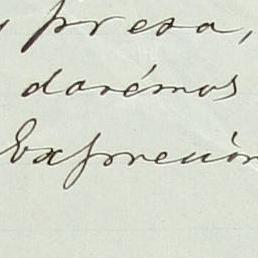 presa,
darémos
Expresión